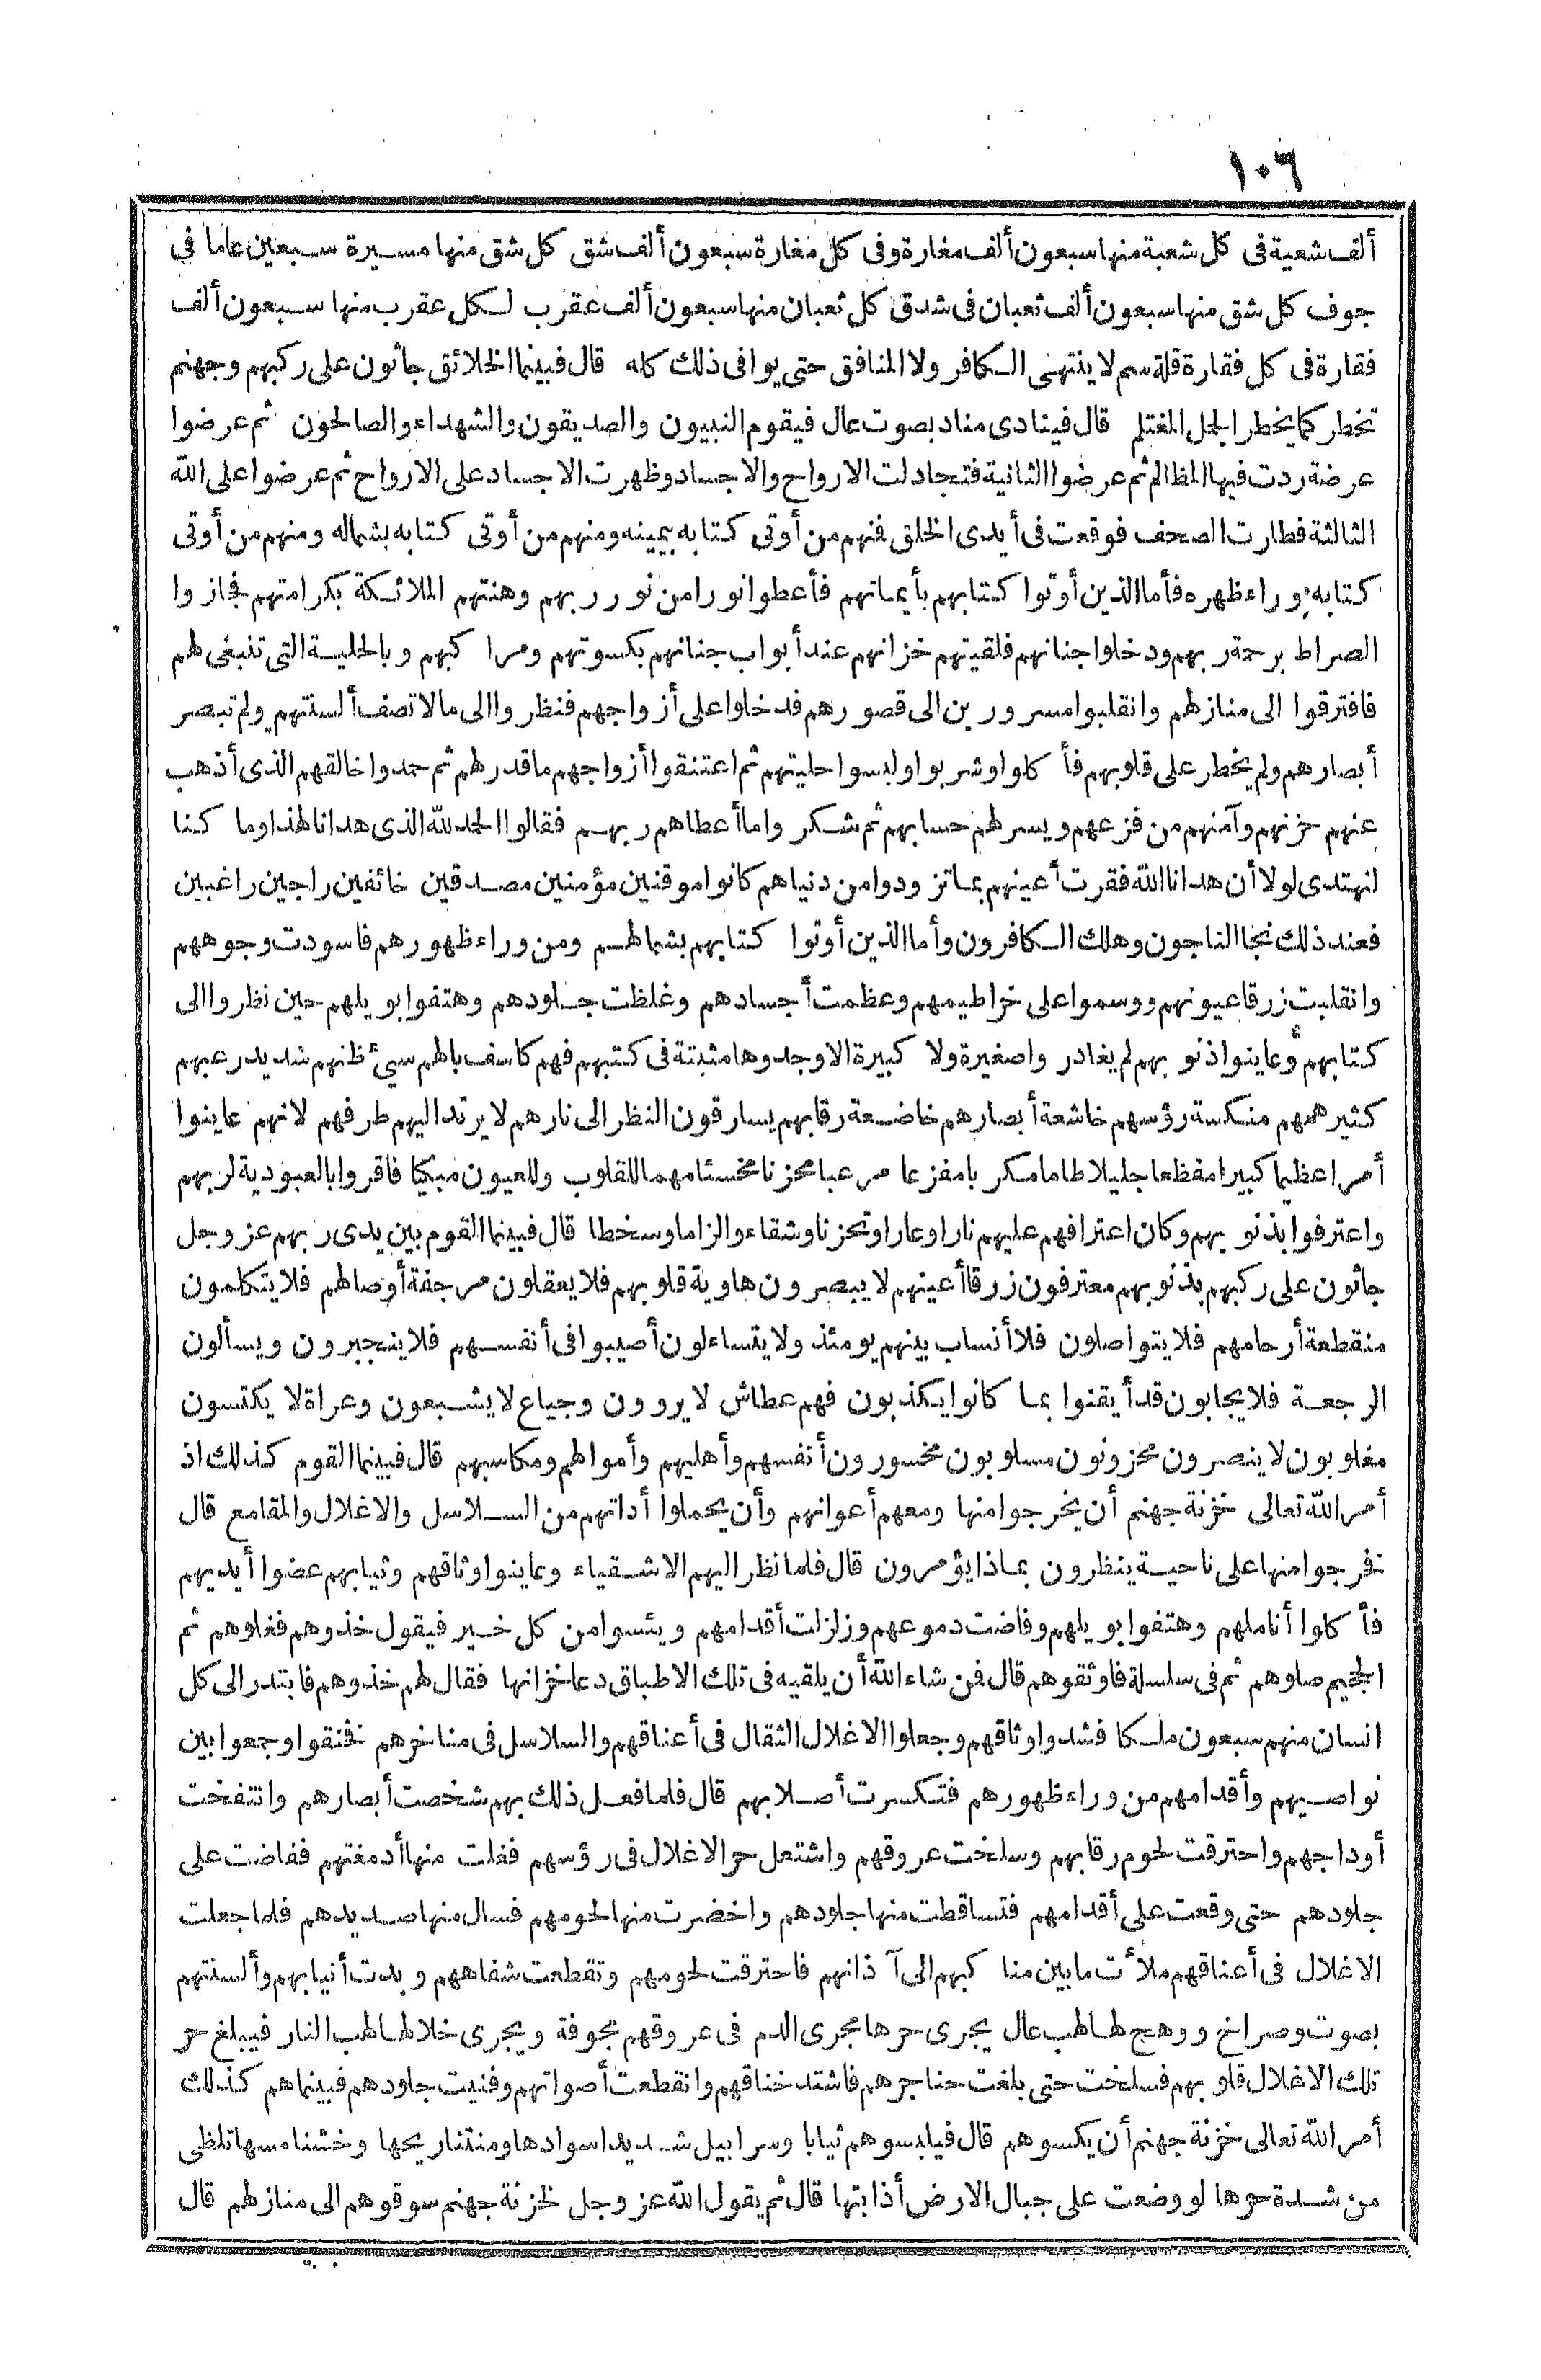 ١٠٦
ألف شعبة فى كل شعبة منها سبعون ألف مغارة وفى كل مغارة سبعون ألف شق كل شق منها مسيرة سبعين عاما فى
جوف كل شق منها سبعون ألف ثعبان فى شدق كل ثعبان منها سبعون ألف عقرب لكل عقرب منها سبعون ألف
فقارة فى كل فقارة قلة سم لا ينتهى الكافر ولا المنافق حتى يوافى ذلك كله قال فبينما الخلائق جاثون على ركبهم وجهنم
تخطر كما يخطر الجمل المغتلم قال فينادى مناد بصوت عال فيقوم النبيون والصديقون والشهداء والصالحون ثم عرضوا
عرضة ردت فيها المظالم ثم عرضوا الثانية فتجادلت الارواح والاجساد وظهرت الاجساد على الارواح ثم عرضوا على الله
الثالثة فطارت الصحف فوقعت فى أيدى الخلق فمنهم من أوتى كتابه بيمينه ومنهم من أوتى كتابه بشماله ومنهم من أوتى
كتابه وراء ظهره فأما الذين أوتوا كتابهم بأيمانهم فأعطوا نورا من نور ربهم وهنتهم الملائكة بكرامتهم فجازوا
الصراط برحمة ربهم ودخلوا جنانهم فلقيتهم خزانهم عند أبواب جنانهم بكسوتهم ومراكبهم وبالحلية التى تنبغى لهم
فافترقوا الى منازلهم وانقلبوا مسرورين الى قصورهم فدخلوا على أزواجهم فنظروا الى مالا تصف ألسنتهم ولم تبصر
أبصارهم ولم يخطر على قلوبهم فأكلوا وشربوا ولبسوا حليتهم ثم اعتنقوا أزواجهم ما قدر لهم ثم حمدوا خالقهم الذى أذهب
عنهم حزنهم وآمنهم من فزعهم ويسر لهم حسابهم ثم شكروا ما أعطاهم ربهم فقالوا الحمد لله الذى هدانا لهذا وما كنا
لنهتدى لولا أن هدانا الله فقرت أعينهم بما تزودوا من دنياهم كانوا موقنين مؤمنين مصدقين خائفين راجين راغبين
فعند ذلك نجا الناجون وهلك الكافرون وأما الذين أوتوا كتابهم بشمالهم ومن وراء ظهورهم فاسودت وجوههم
وانقلبت زرقا عيونهم ووسموا على خراطيمهم وعظمت أجسادهم وغلظت جلودهم وهتفوا بويلهم حين نظروا الى
كتابهم وعاينوا ذنوبهم لم يغادروا صغيرة ولا كبيرة الا وجدوها مثبتة فى كتبهم فهم كاسف بالهم سيئ ظنهم شديد رعبهم
كثير همهم منكسة رؤسهم خاشعة أبصارهم خاضعة رقابهم يسارقون النظر الى نارهم لا يرتد اليهم طرفهم لانهم عاينوا
أمرا عظيما كبيرا مفظعا جليلا طاما مكربا مفزعا مرعبا محزنا مخسئا مهما للقلوب وللعيون مبكيا فاقروا بالعبودية لربهم
واعترفوا بذنوبهم وكان اعترافهم عليهم نارا وعارا وتحزنا وشقاء والزاما وسخطا قال فبينما القوم بين يدى ربهم عز وجل
جاثون على ركبهم بذنوبهم معترفون زرقا أعينهم لا يبصرون هاوية قلوبهم فلا يعقلون مرجفة أوصالهم فلا يتكلمون
منقطعة أرحامهم فلا يتواصلون فلا أنساب بينهم يومئذ ولا يتساءلون أصيبوا فى أنفسهم فلا ينجبرون ويسألون
الرجعة فلا يجابون قد أيقنوا بما كانوا يكذبون فهم عطاش لا يروون وجياع لا يشبعون وعراة لا يكتسون
مغلوبون لا ينصرون محزونون مسلوبون مخسورون أنفسهم وأهليهم وأموالهم ومكاسبهم قال فبينما القوم كذلك اذ
أمر الله تعالى خزنة جهنم أن يخرجوا منها ومعهم أعوانهم وأن يحملوا أداتهم من السلاسل والاغلال والمقامع قال
فخرجوا منها على ناحية ينظرون بماذا يؤمرون قال فلما نظر اليهم الاشقياء وعاينوا وثاقهم وثيابهم عضوا أيديهم
فأكلوا أناملهم وهتفوا بويلهم وفاضت دموعهم وزلزلت أقدامهم ويئسوا من كل خير فيقول خذوهم فغلوهم ثم
الجحيم صلوهم ثم فى سلسلة فاوثقوهم قال فمن شاء الله أن يلقيه فى تلك الاطباق دعا خزانها فقال لهم خذوهم فابتدر الى كل
انسان منهم سبعون ملكا فشدوا وثاقهم وجعلوا الاغلال الثقال فى أعناقهم والسلاسل فى مناخرهم فخنقوا وجمعوا بين
نواصيهم وأقدامهم من وراء ظهورهم فتكسرت أصلابهم قال فلما فعل ذلك بهم شخصت أبصارهم وانتفخت
أوداجهم واحترقت لحوم رقابهم وسلخت عروقهم واشتعل حر الاغلال فى رؤسهم فغلت منها أدمغتهم ففاضت على
جلودهم حتى وقعت على أقدامهم فتساقطت منها جلودهم واخضرت منها لحومهم فسال منها صديدهم فلما جعلت
الاغلال فى أعناقهم ملأت ما بين مناكبهم الى آذانهم فاحترقت لحومهم وتقطعت شفاههم وبدت أنيابهم وألسنتهم
بصوت وصراخ ووهج لها لهب عال يجرى حرها مجرى الدم فى عروقهم مجوفة ويجرى خلالها لهب النار فيبلغ حر
تلك الاغلال قلوبهم فسلخت حتى بلغت حناجرهم فاشتد خناقهم وانقطعت أصواتهم وفنيت جلودهم فبينما هم كذلك
أمر الله تعالى خزنة جهنم أن يكسوهم قال فيلبسوهم ثيابا وسرابيل شديدا سوادها ومنتنا ريحها وخشنا مسها تلظى
من شدة حرها لو وضعت على جبال الارض أذابتها قال ثم يقول الله عز وجل لخزنة جهنم سوقوهم الى منازلهم قال